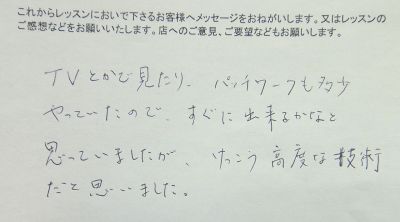 これからレッスンにおいで下さるお客様へメッセージをおねがいします。又はレッスンの
ご感想などをお願いいたします。店へのご意見、ご要望などもお願いします。
TVとかで見たり、パッチワークも多少
やっていたので、すぐに出来るかなと
思っていましたが、けっこう高度な技術
だと思いました。